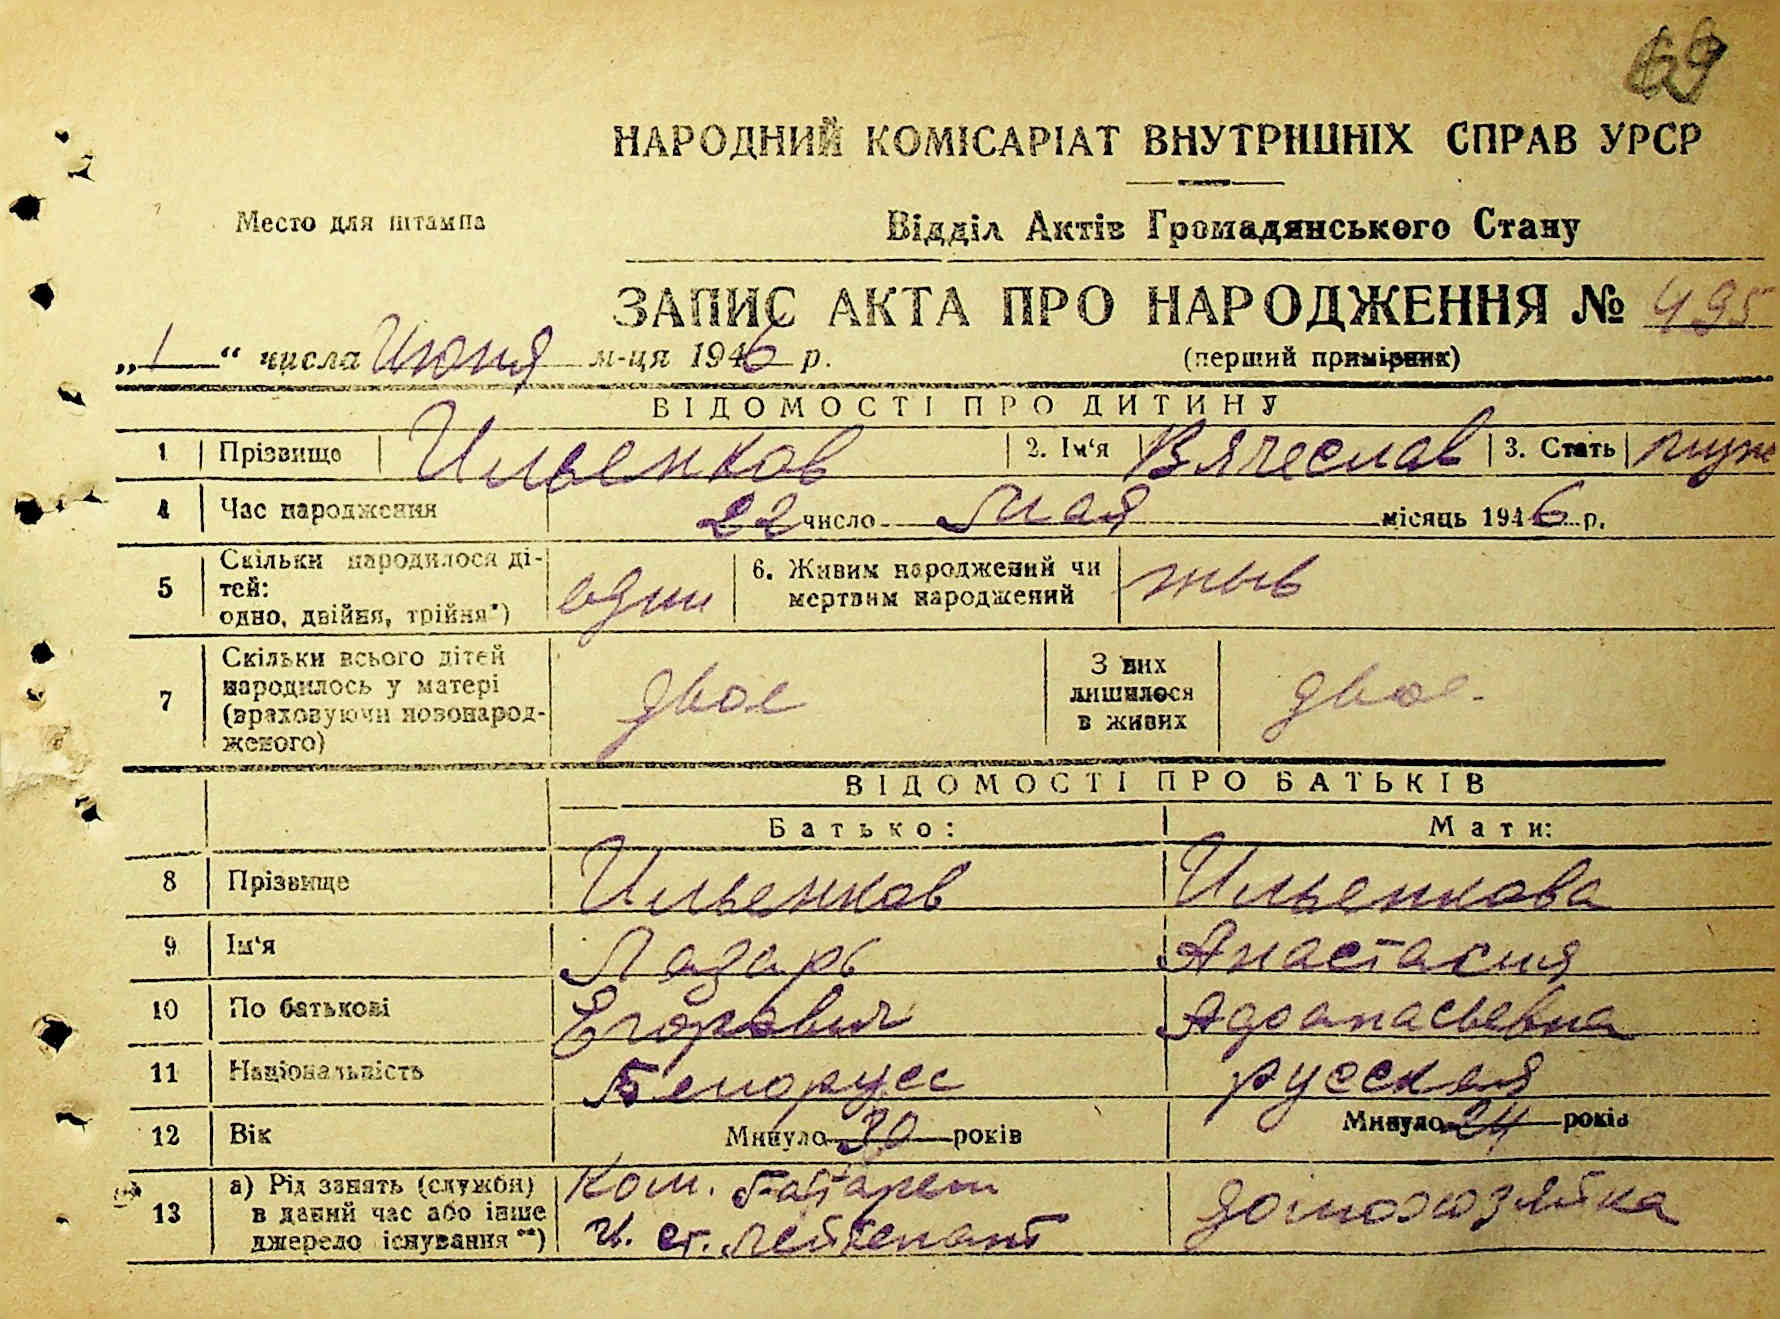 69
НАРОДНИЙ КОМІСАРІАТ ВНУТРІШНІХ СПРАВ УРСР
Место для штампа
Відділ Актів Громадянського Стану
ЗАПИС АКТА ПРО НАРОДЖЕННЯ № 495
„1“ числа Июня м-ця 1946 р.
(перший примірник)
ВІДОМОСТІ ПРО ДИТИНУ
1 Прізвище Ильенков 2. Ім'я Вячеслав 3. Стать муж
4 Час народження 22 число Мая місяць 1946 р.
5 Скільки народилося ді-
тей:
одно, двійня, трійня*) один
6. Живим народжений чи
мертвим народжений жив
7 Скільки всього дітей
народилось у матері
(враховуючи новонарод-
женого) двое
З них
лишилося
в живих двое
ВІДОМОСТІ ПРО БАТЬКІВ
Батько: Мати:
8 Прізвище Ильенков Ильенкова
9 Ім'я Лазарь Анастасия
10 По батькові Егорович Афанасьевна
11 Національність Белорусс русская
12 Вік Минуло 30 років Минуло 24 років
13 а) Рід занять (служби)
в даний час або інше
джерело існування **)
Ком. батареи
ст. лейтенант
домохозяйка